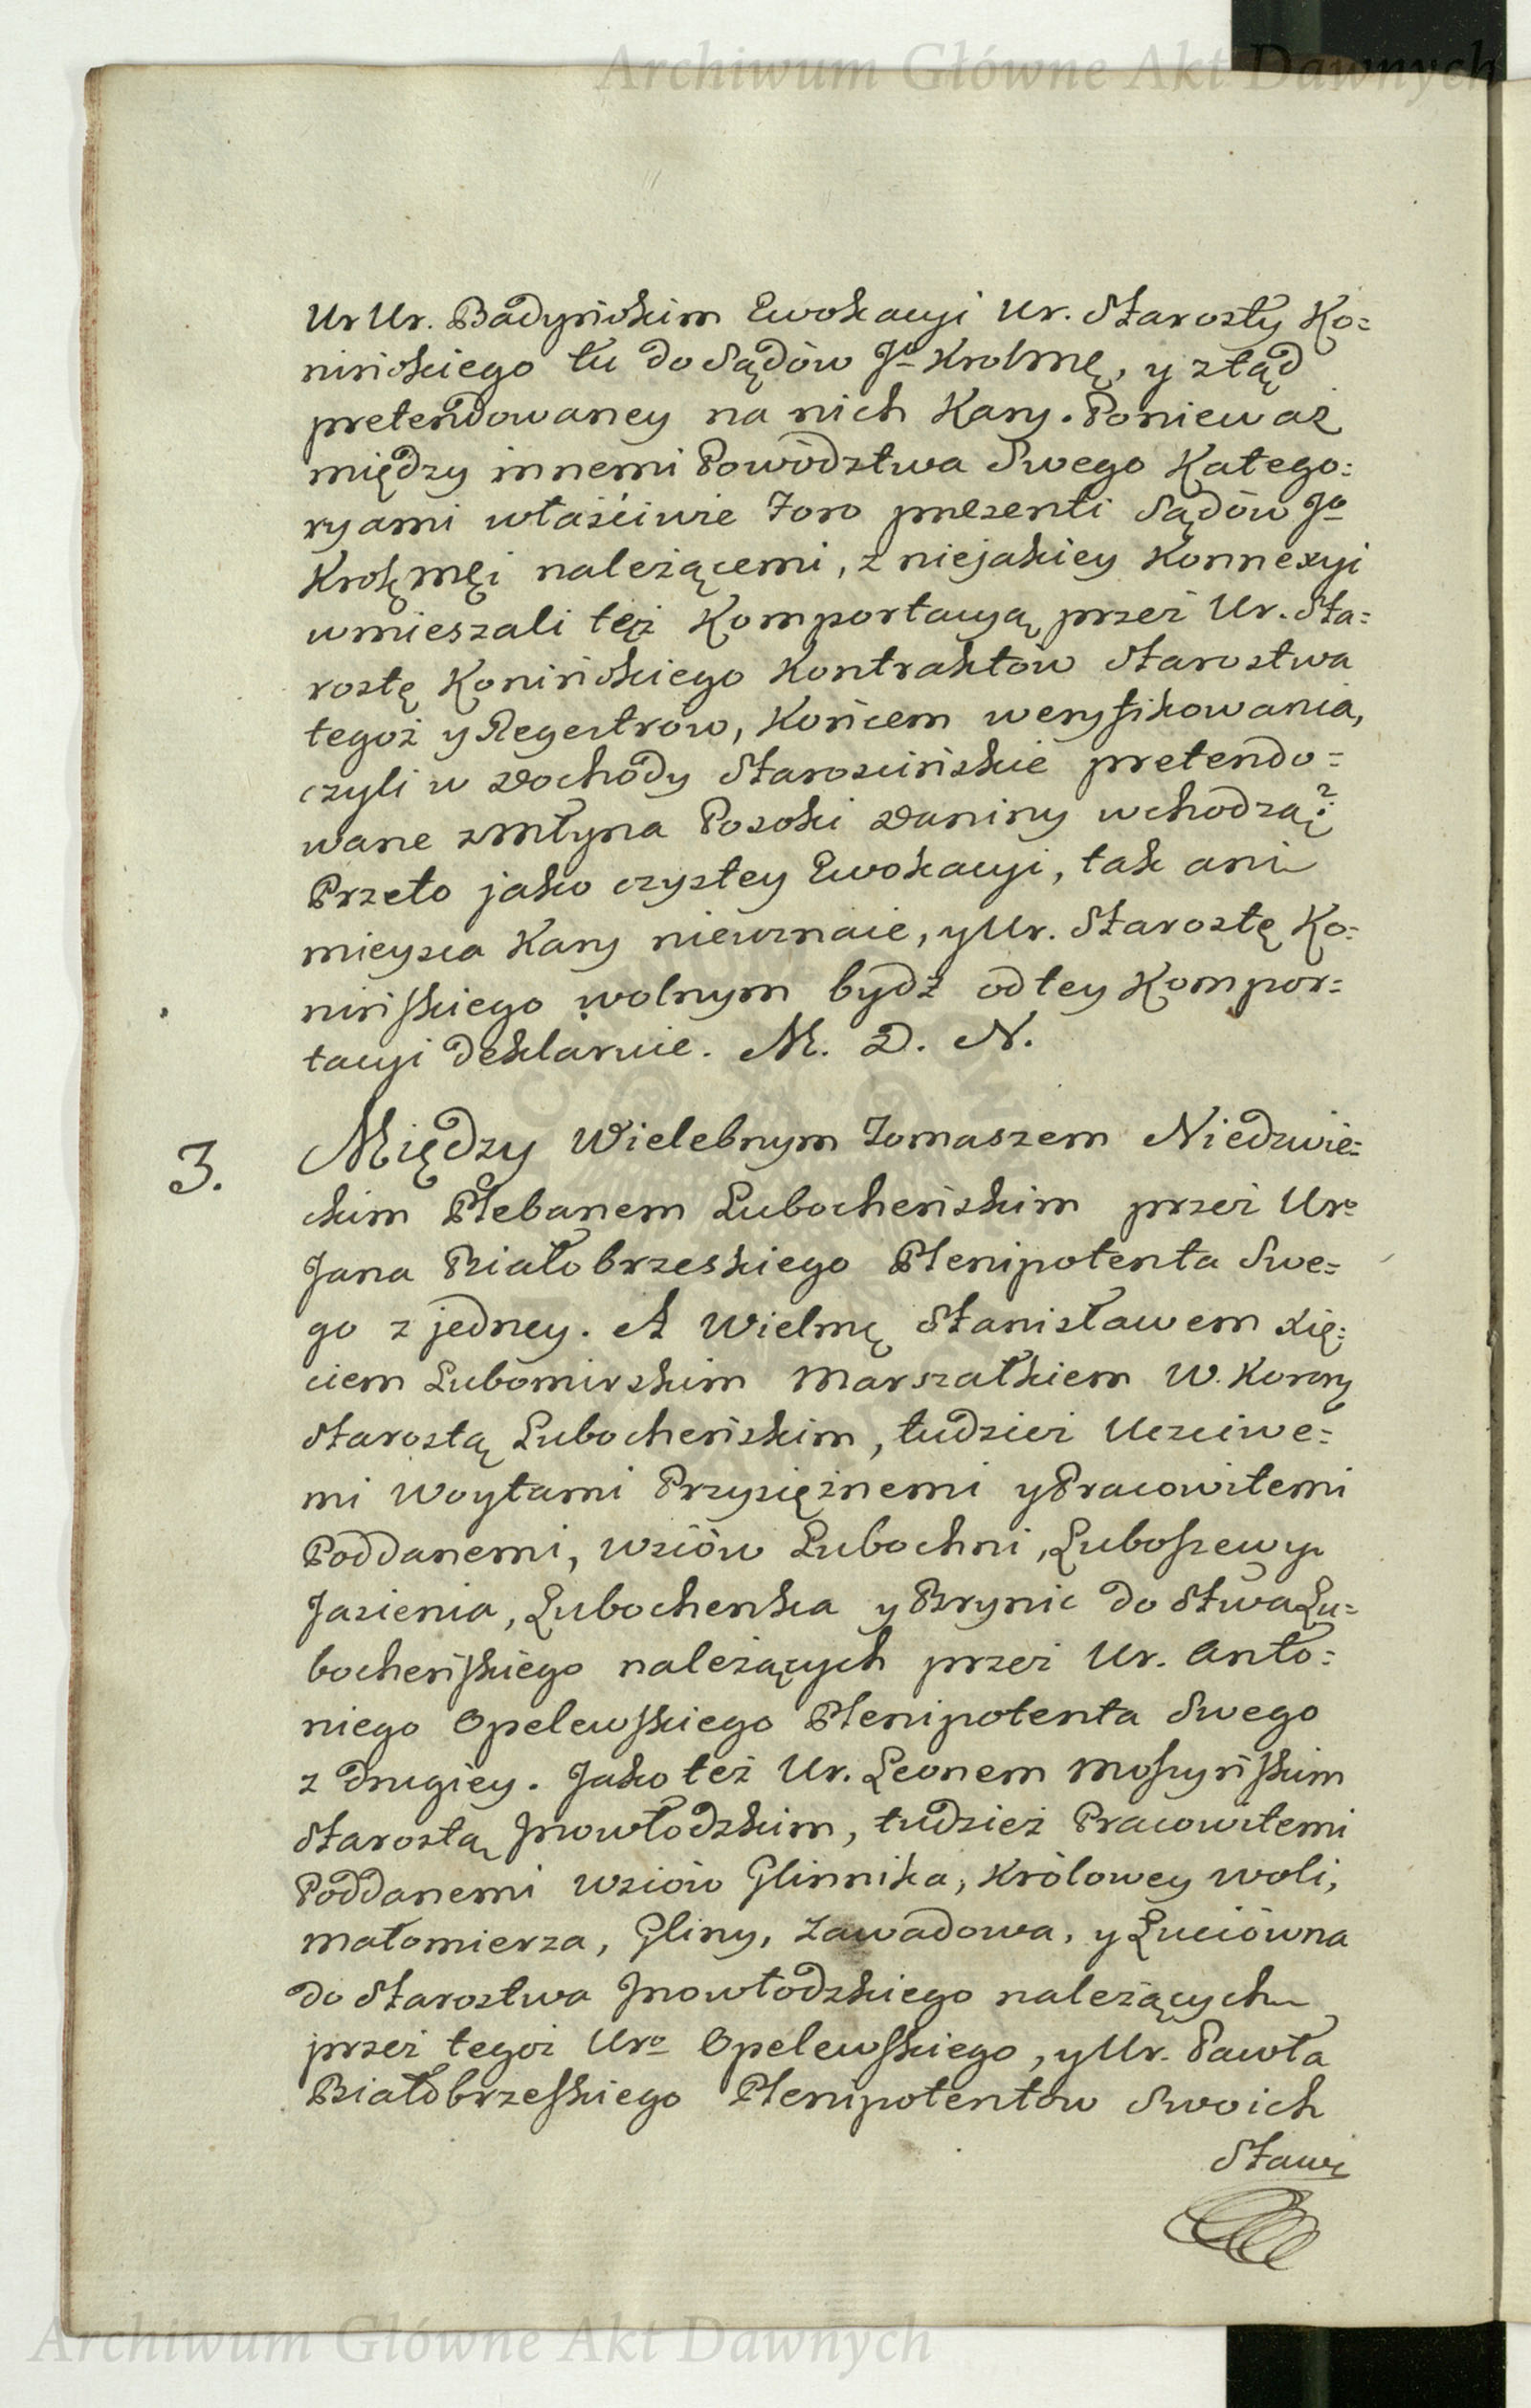 Archiwum Główne Akt Dawnych
Ur Ur. Badyńskim Ewokacyi Ur. Starosty Ko=
nińskiego tu do Sądów Jº KrolMę, y ztąd
pretendowaney na nich Kary. Ponieważ
między innemi Powództwa Swego Katego=
ryami właściwie Foro praesenti Sądów Jº
KrolęMęi należącemi, z niejakiey Konnexyi
wmieszali też Komportacyą przez Ur. Sta=
rostę Konińskiego Kontraktów Starostwa
tegoż y Regestrów, Końcem weryfikowania,
czyli w Dochody Starościńskie pretendo=
wane z Młyna Posoki Daniny wchodzą?
Przeto jako czystey Ewokacyi, tak ani
mieysca Kary nieuznaie, y Ur. Starostę Ko=
nińskiego wolnym bydź od tey Kompor=
tacyi deklaruie. M. D. N.
3. Między Wielebnym Tomaszem Niedzwie=
ckim Plebanem Lubocheńskim przez Urº
Jana Białobrzeskiego Plenipotenta Swe=
go z jedney. A Wielmę Stanisławem Xię=
ciem Lubomirskim Marszałkiem W. Korony
Starostą Lubocheńskim, tudzież Uczciwe=
mi Woytami Przysiężnemi y Pracowitemi
Poddanemi, Wsiów Lubochni, Luboszewy
Jasienia, Lubochenka y Brynic do Stwa Lu=
bocheńskiego należących przez Ur. Anto=
niego Opelewskiego Plenipotenta Swego
z drugiey. Jako też Ur. Leonem Moszyńskim
Starostą Jnowłodzkim, tudzież Pracowitemi
Poddanemi Wsiów Glinnika, Królowey Woli,
Małomierza, Gliny, Zawadowa, y Luciówna
do Starostwa Jnowłodzkiego należących
przez tegoż Urº Opelewskiego, y Ur. Pawła
Białobrzeskiego Plenipotentów Swoich
Archiwum Główne Akt Dawnych